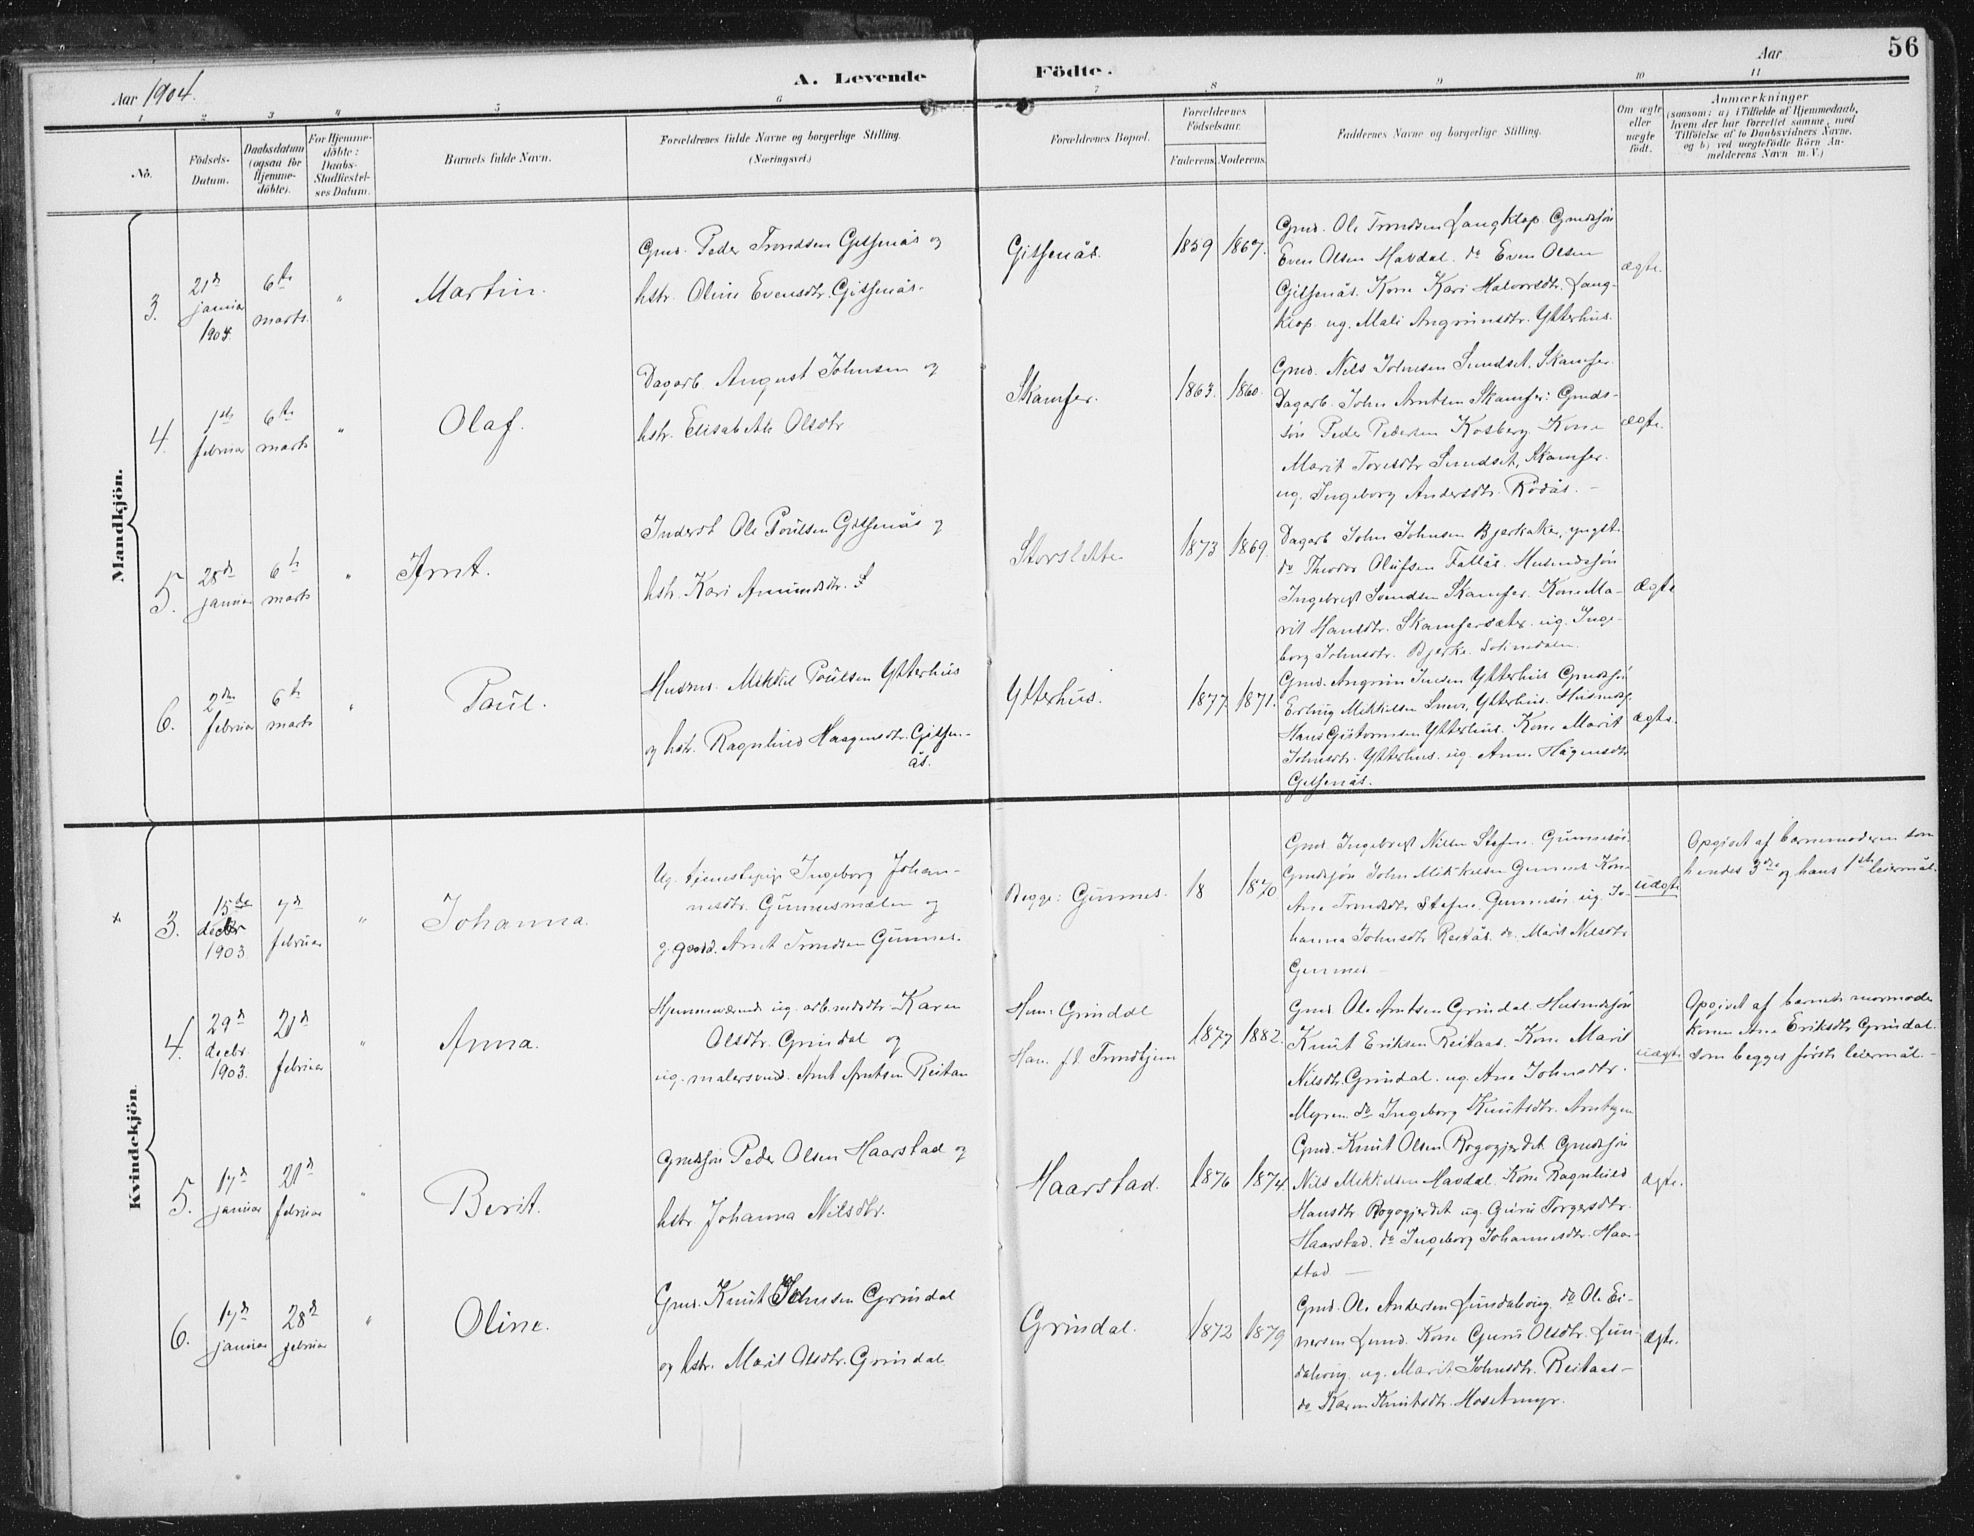 56
Aar 1904.
A. Levende Födte.
Aar
1 2 3 4 5 6 7 8 9 10 11
No.
Födsels-
Datum.
Daabsdatum
(ogsaa for
Hjemme-
döbte).
For Hjemme-
döbte:
Daabs-
Stadfæstel-
ses Datum.
Barnets fulde Navn.
Forældrenes fulde Navne og borgerlige Stilling.
(Næringsvei.)
Forældrenes Bopæl.
Forældrenes
Födselsaar.
Faderens. Moderens.
Faddernes Navne og borgerlige Stilling.
Om ægte
eller
uægte
födt.
Anmærkninger
(saasom: a) i Tilfælde af Hjemmedaab,
hvem der har forrettet samme, med
Tilföielse af to Daabsvidners Navne.
og b) ved uægtefödte Börn An-
melderens Navn m. V.)
Mandkjön.
3.
21de
januar
1904.
6te
marts.
"
Martin.
Gmd. Peder Trondsen Gitsenås og
hstr. Oline Evensdtr. Gitsenås.
Gitsenås.
1859 1867.
Gmd. Ole Trondsen Langklop Gmdssön
Even Olsen Havdal. do Even Olsen
Gitsenås. Kone Kari Halvorsdtr. Lang-
klop. ug. Mali Angrimsdtr. Ytterhus.
ægte.
4.
1ste
februar
6te
marts
"
Olaf.
Dagarb. August Johnsen og
hstr. Elisabeth Olsdtr
Skamfer.
1863. 1860.
Gmd. Nils Johnsen Sundset, Skamfer.
Dagarb. John Arntsen Skamfer: Gmds-
sön Peder Pedersen Kosberg Kone
Marit Toresdtr Sundset, Skamfer.
ug. Ingeborg Andersdtr. Rödås. –
ægte.
5.
28de
januar
6te
marts
"
Arnt.
Inderst Ole Poulsen Gitsenås og
hstr. Kari Amundsdtr.
Storslette
1873 1869.
Dagarb John Johnsen Bjerkaker, yngste.
do Theodor Olufsen Fallås. Husmdssön
Ingebrigt Svendsen Skamfer. Kone Ma-
rit Hansdtr. Skamfersæter. ug. Inge-
borg Johnsdtr. Bjerke
ægte
6.
2den
februar
6te
marts
"
Paul.
Husm. Mikkel Poulsen Ytterhus
og hstr. Ragnhild Haagensdtr. Gitsen-
ås.
Ytterhus.
1877. 1871.
Gmd. Angrim Ytterhus Gmdssön
Erling Mikkelsen Ytterhus.
Hans Ytterhus. Kone Marit
Johnsdtr. Ytterhus. ug. Ane Hågensdtr
Gitsenås.
ægte.
Kvindekjön
+
3.
15de
decbr
1903
7de
februar
"
Johanna.
Ug. tjenestepige Ingeborg Johan-
nesdtr. Gunnesmælen og
g. Arnt Trondsen Gunnes.
Begge: Gunnes.
18 1870
Gmd. Ingebrigt Nilsen Gunnesöi
Gmdssön John Mikkelsen Gunnes Kone
Ane Trondsdtr Gunnesöi ug. Jo-
hanna Johnsdtr Reitås. do Marit Nilsdtr
Gunnes –
uægte
Opgivet af barnemoderen som
hendes 3die og hans 1ste leiermål.
4.
29de
decbr.
1903.
21de
februar
"
Anna.
Hjemmeværende ug. Karen
Olsdtr. Grindal og
ug. malersvend. Arnt Arntsen Reitan
Hun: Grindal
Han. f. t. Trondhjem
1877 1882.
Gmd Ole Arntsen Grindal Husmdssön
Knut Eriksen Reitaas. Kone Marit
Nilsdtr. Grindal. ug. Ane Johnsdtr.
Myren. do Ingeborg Knutsdtr.
uægte
Opgivet af barnets mormoder
konen Ane Eriksdtr Grindal.
som begges förste leiermål.–
5.
17de
januar
21de
februar
"
Berit.
Gmdssön Peder Olsen Haarstad og
hstr Johanna Nilsdtr.
Haarstad.
1876 1874.
Gmd. Knut Olsen Rogogjerdet Gmdssön
Nils Mikkelsen Havdal. Kone Ragnhild
Hansdtr Rogogjerdet ug. Guru Torgersdtr.
Haarstad. do Ingeborg Johannesdtr. Haar-
stad –
ægte.
6.
17de
januar
28de
februar
"
Oline.
Gmd. Knut Johnsen Grindal
og hstr. Marit Olsdtr. Grindal
Grindal.
1872 1879
Gmd. Ole Andersen Lundalvoig. do Ole Ei-
nersen Lund. Kone Guru Olsdtr. Lun-
dalvoig. ug. Marit Johnsdtr. Reitaas–
do Karen Knutsdtr. Hosetmyr.
ægte.